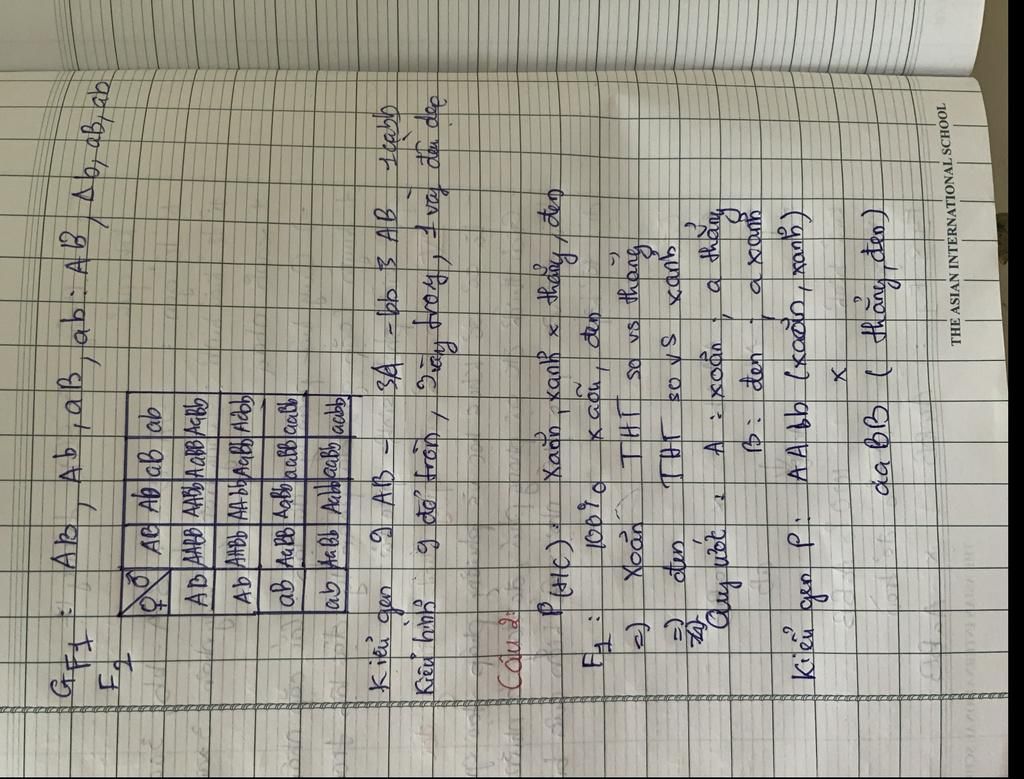 GF1 : AB, Ab, aB, ab : AB, Ab, aB, ab
F2
♀ ♂ AB Ab aB ab
AB AABB AABb AaBB AaBb
Ab AABb AAbb AaBb Aabb
aB AaBB AaBb aaBB aaBb
ab AaBb Aabb aaBb aabb
Kiểu gen 9 AB - 3A - bb 3 AB 1aabb
Kiểu hình 9 đỏ tròn, 3 vàng troy, 1 vàg đều dẹp
Câu 2:
P(HC): Xoăn, xanh x thẳng, đen
F1 : 100% xoăn, đen
=) Xoăn THT so vs thẳng
=) đen THT so vs xanh
Quy ước : A : xoăn ; a thẳng
B : đen ; a xanh
Kiểu gen P: AAbb (xoăn, xanh)
x
aaBB ( thẳng, đen)
THE ASIAN INTERNATIONAL SCHOOL